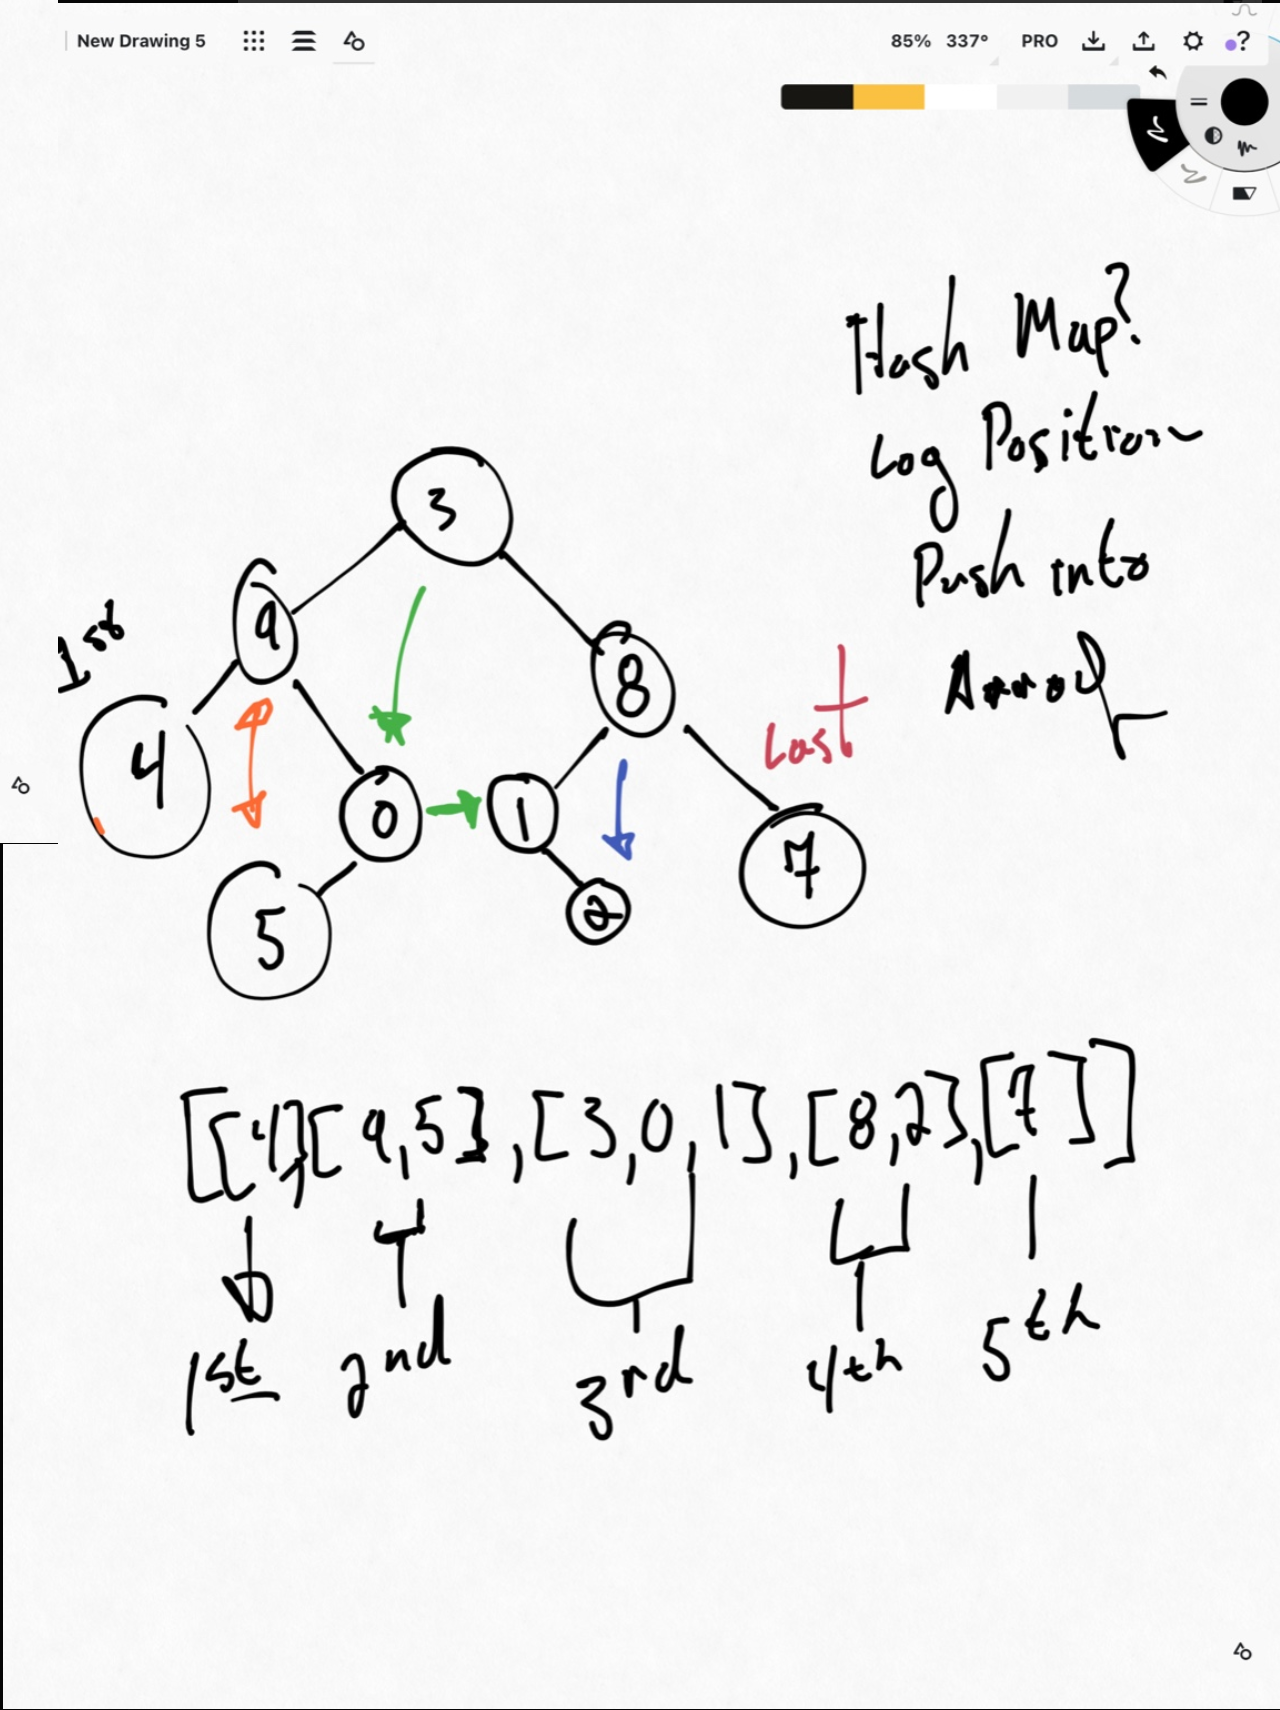 New Drawing 5
85% 337° PRO ?
Hash Map?
Log Position
Push into
Array
3
9
8
1st
4
0
1
Last
7
5
2
[[4],[9,5],[3,0,1],[8,2],[7]]
1st 2nd 3rd 4th 5th